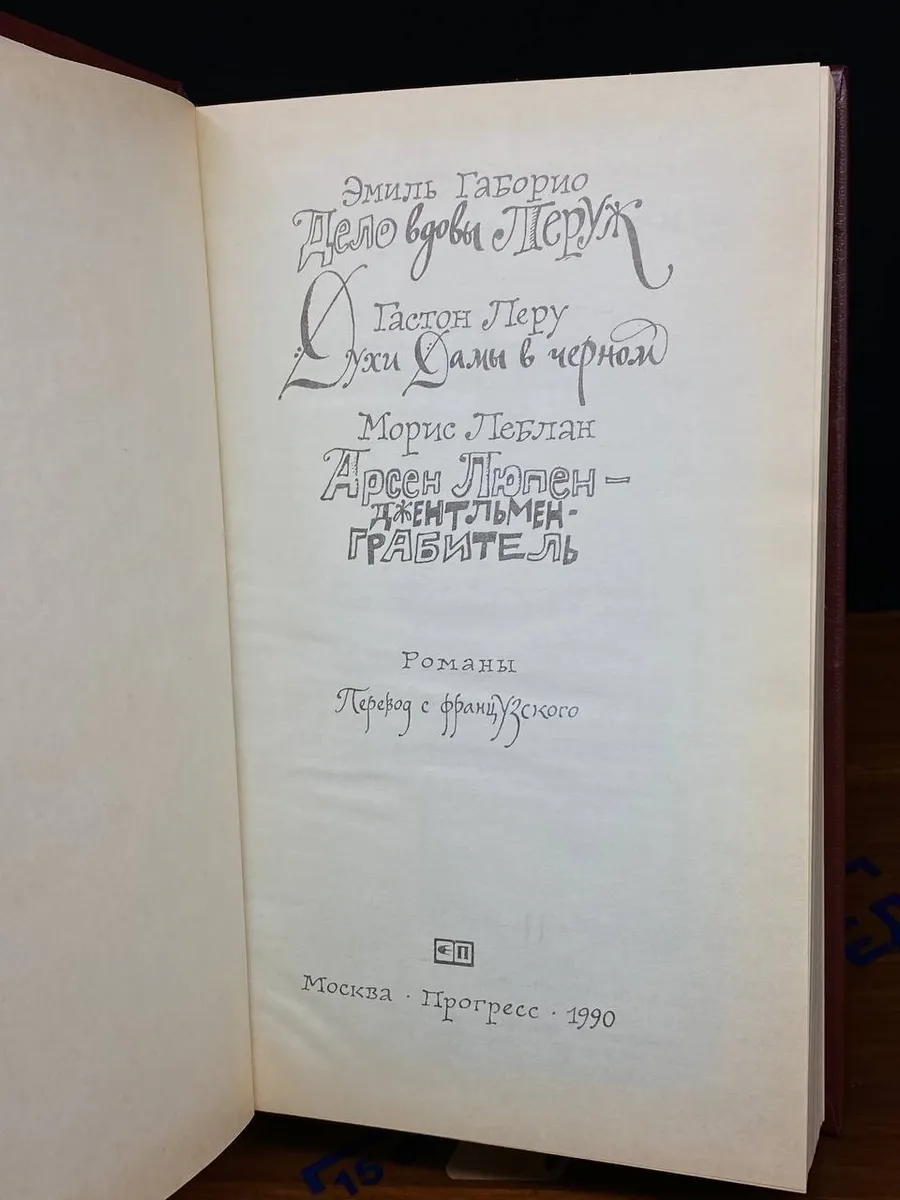 Эмиль Габорио
Дело вдовы Леруж
Гастон Леру
Духи Дамы в черном
Морис Леблан
Арсен Люпен –
ДЖЕНТЛЬМЕН-
ГРАБИТЕЛЬ
Романы
Перевод с французского
П
Москва · Прогресс · 1990
15